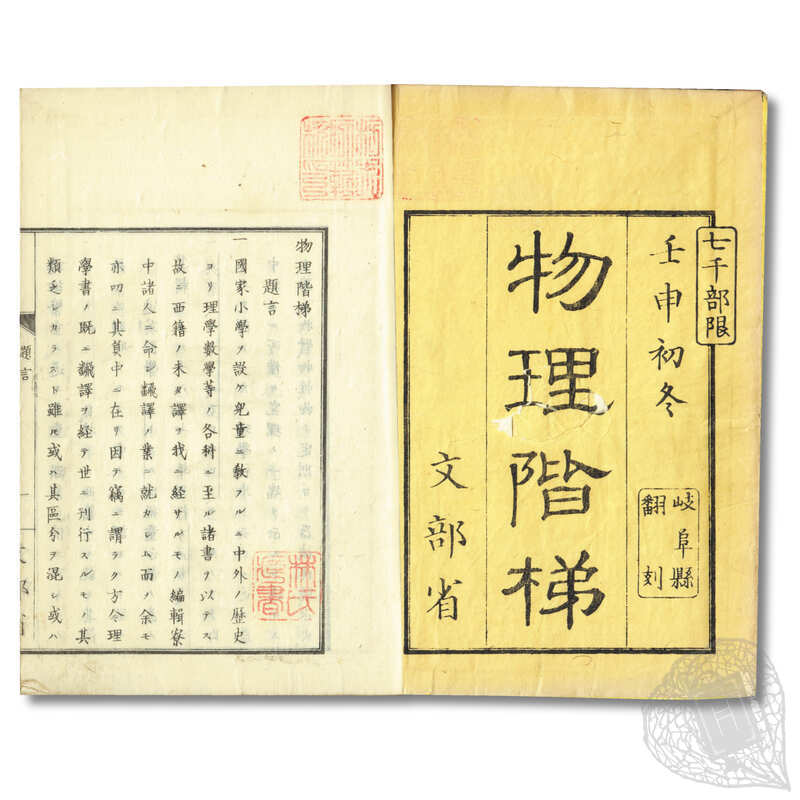 七千部限
壬申初冬
岐阜縣
翻刻
物理階梯
文部省
物理階梯
題言
一國家小學ヲ設ケ兒童ニ敎フルニ中外ノ歴史
ヨリ理學數學等ノ各科ニ至ル諸書ヲ以テス
故ニ西籍ノ未タ譯ヲ我ニ経サルモノ編輯寮
中諸人ニ命シ飜譯ノ業ニ就カシム而ノ余モ
亦叨ニ其員中ニ在リ因テ竊ニ謂ラク方今理
學書ノ既ニ飜譯ヲ経テ世ニ刊行スルモノ其
類乏シカラスト雖ル或ハ其區分ヲ混シ或ハ
林氏
蔵書
題言
一
H